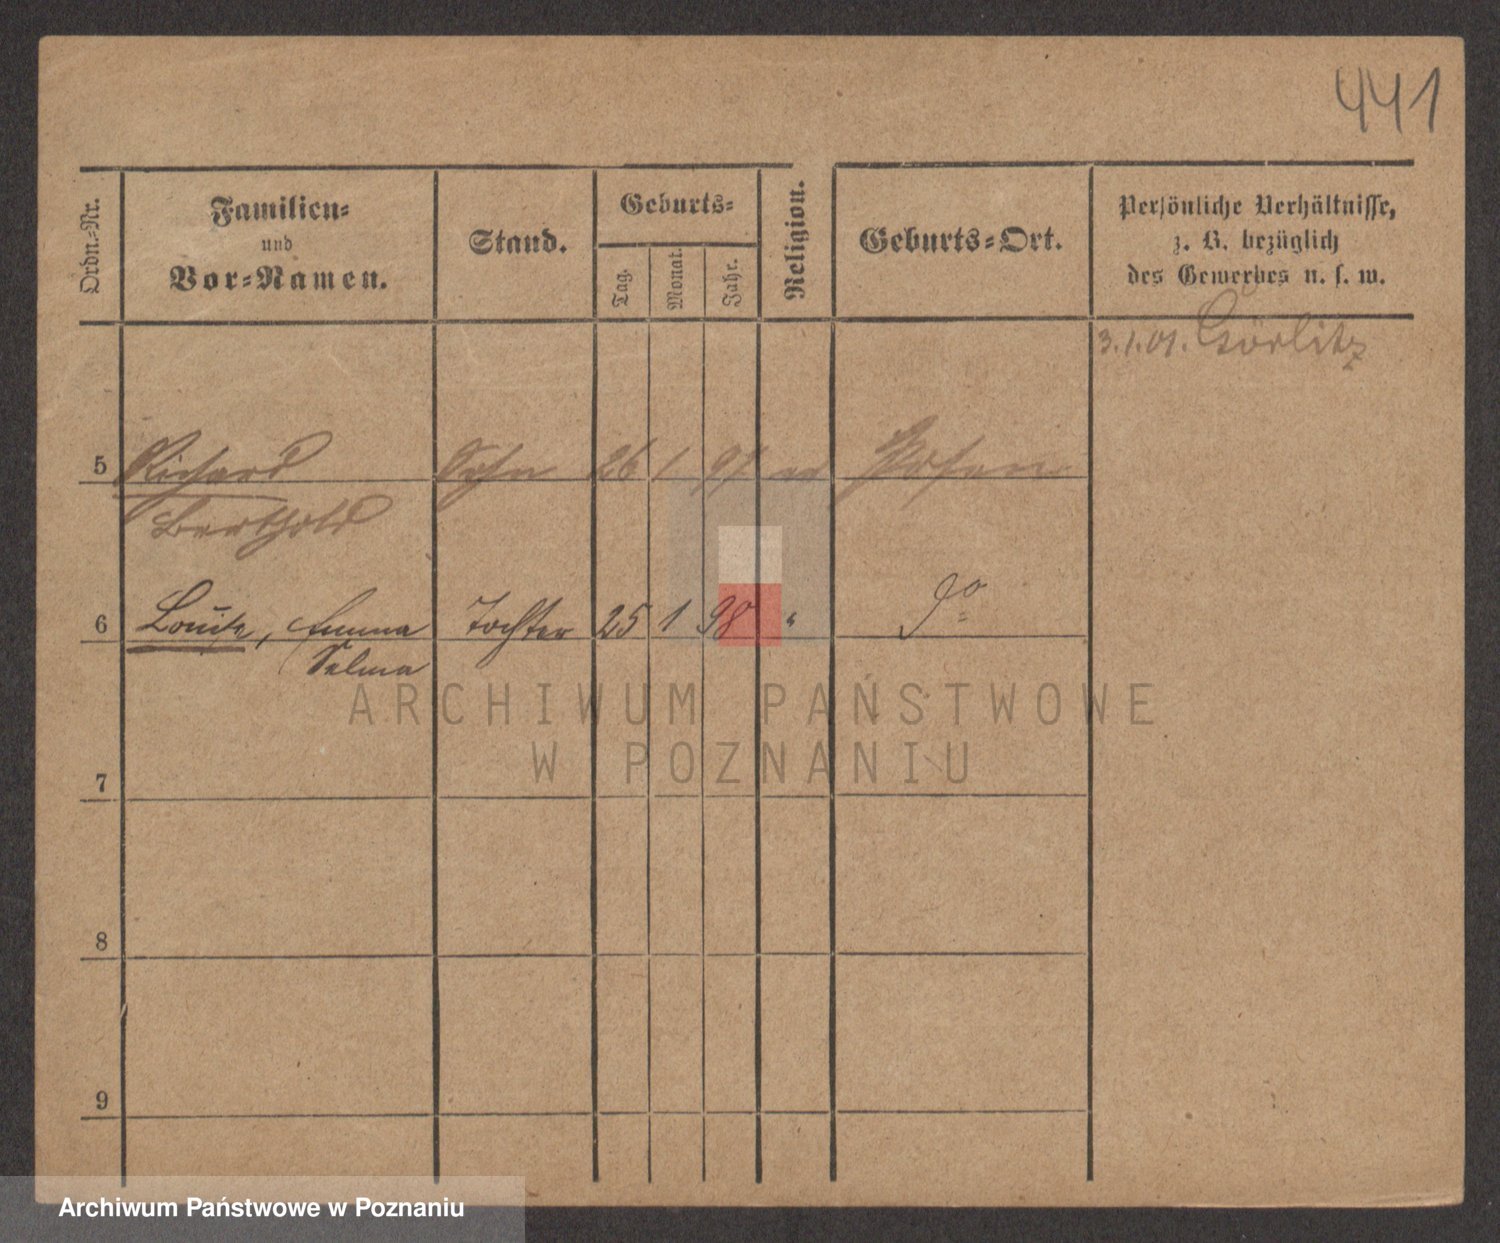 441
Ordn.-Nr.
Familien-
und
Vor-Namen.
Stand.
Geburts-
Tag.
Monat.
Jahr.
Religion.
Geburts-Ort.
Persönliche Verhältnisse,
z. B. bezüglich
des Gewerbes u. s. w.
3.1.01. Görlitz
5 Richard Sohn 26 1 97 ev Posen
Berthold
6 Louise, Emma Tochter 25 1 98 " do
Selma
ARCHIWUM PAŃSTWOWE
W POZNANIU
7
8
9
Archiwum Państwowe w Poznaniu